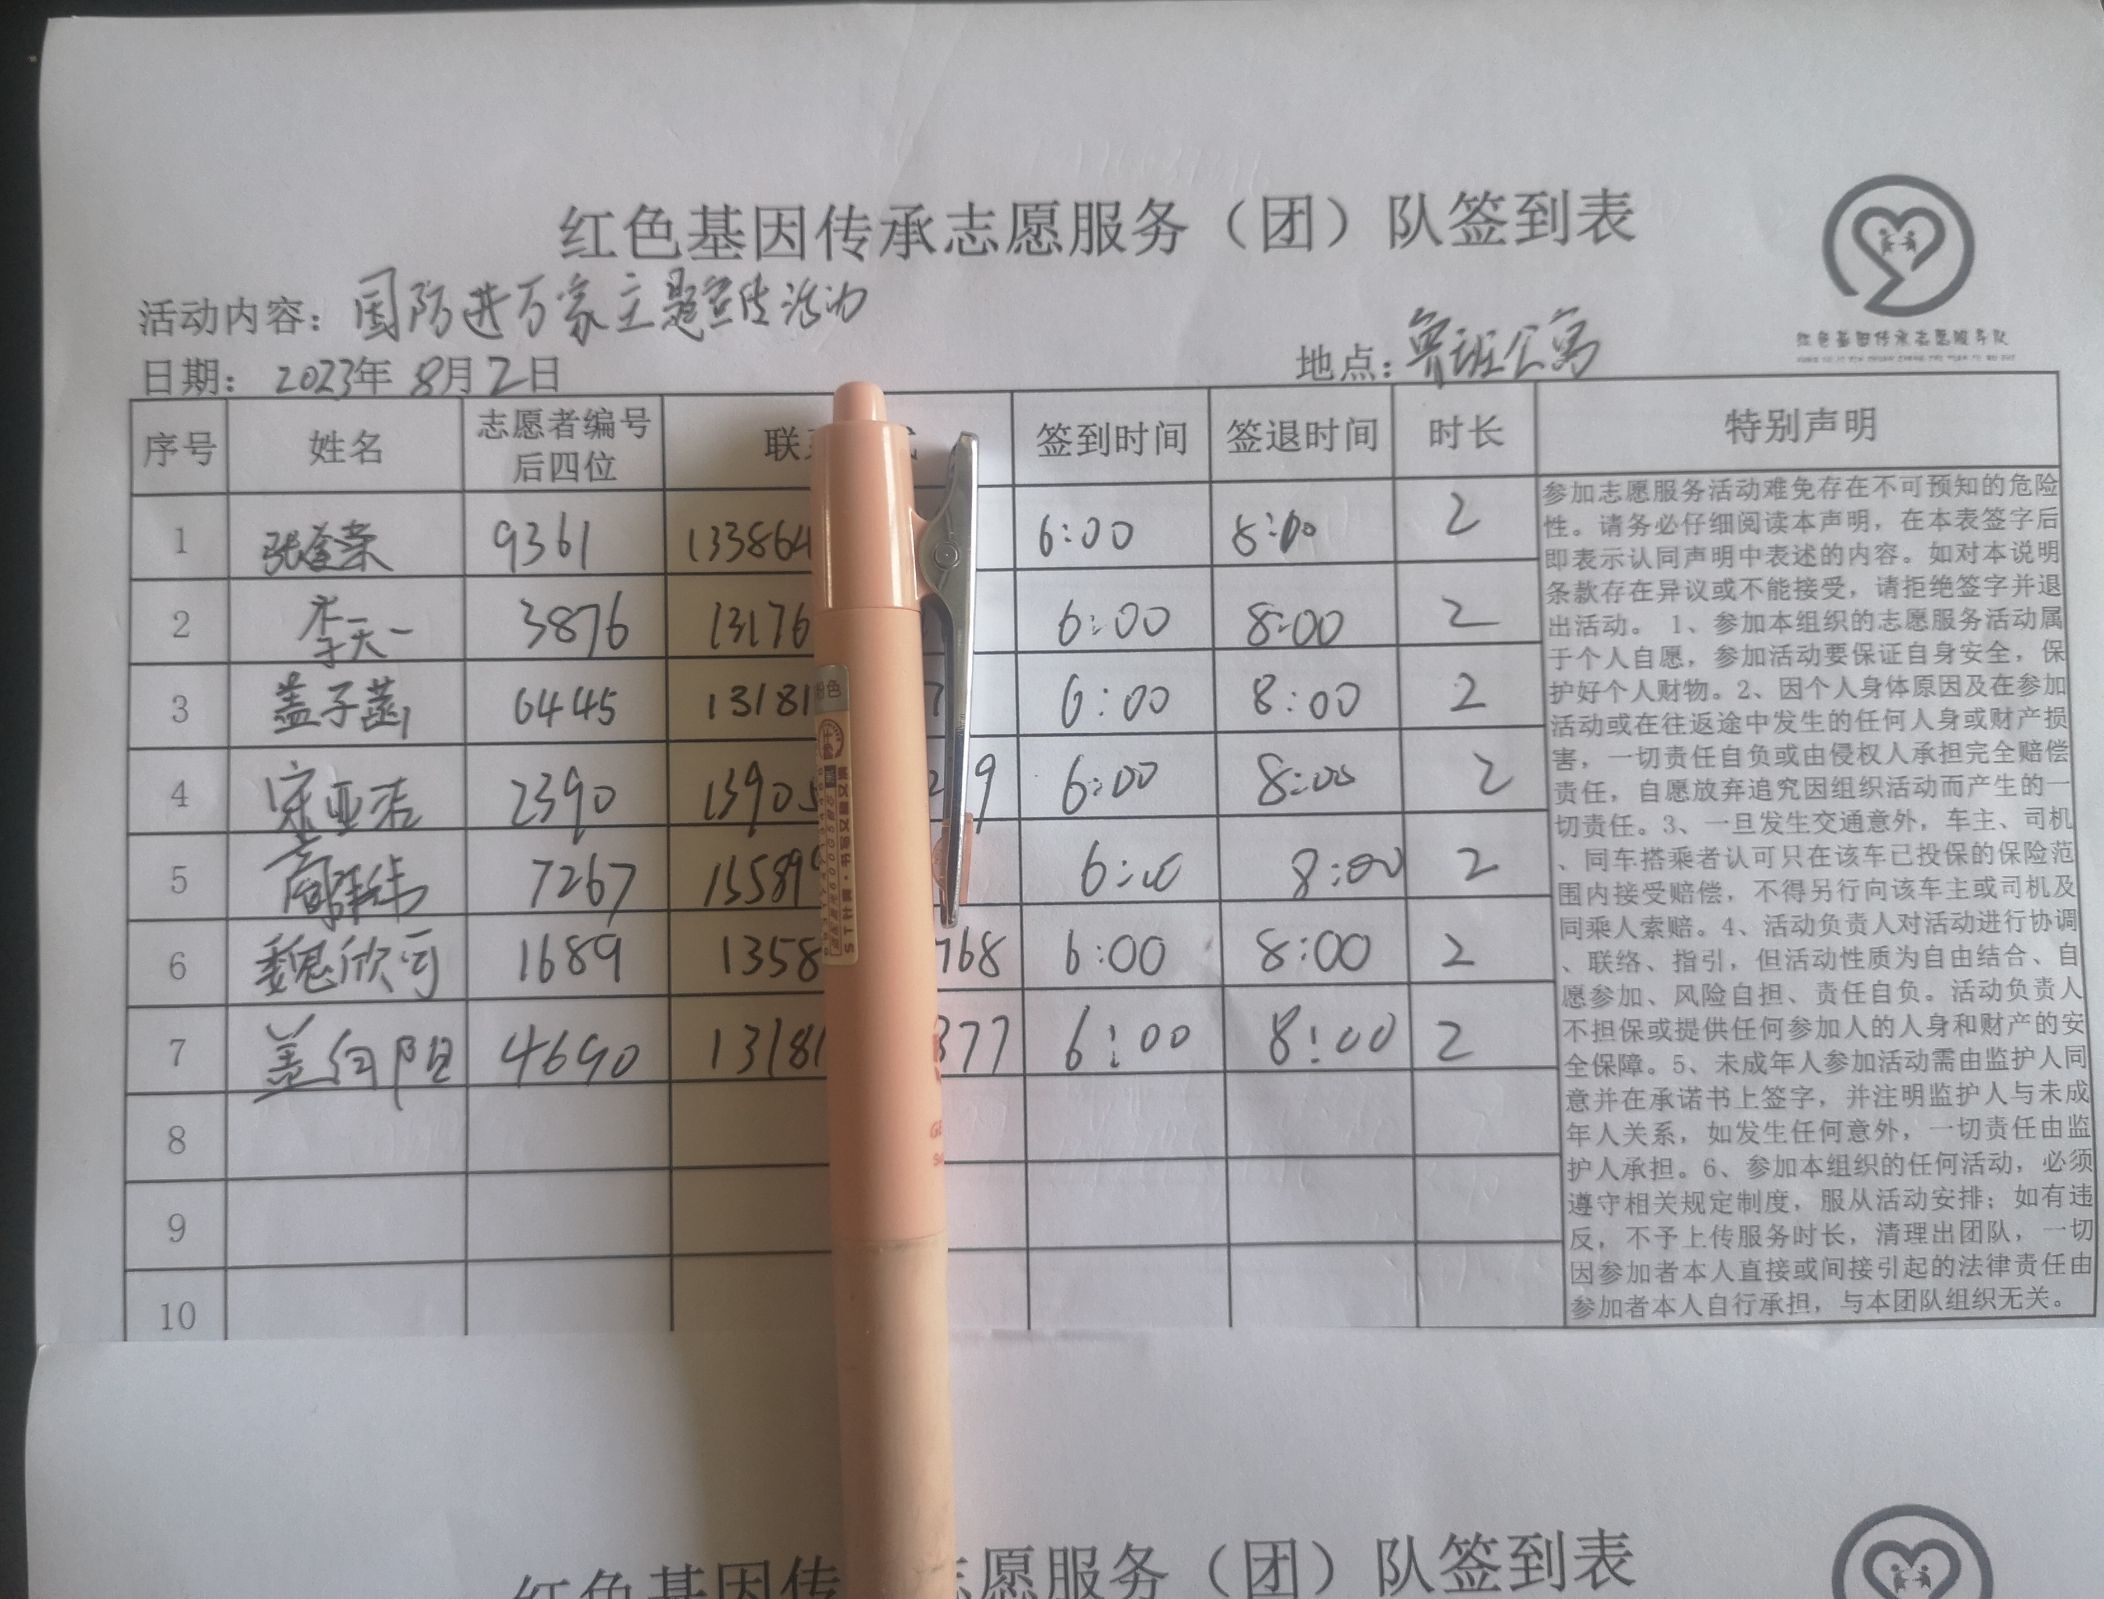 红色基因传承志愿服务（团）队签到表
活动内容：国防进万家主题宣传活动
日期：2023年8月2日 地点：鲁班公寓
红色基因传承志愿服务队
序号 姓名 志愿者编号后四位 联 签到时间 签退时间 时长 特别声明
1 张 荣 9361 133864 6:00 8:00 2
2 李天一 3876 13176 6:00 8:00 2
3 盖子菡 6445 13181 7 6:00 8:00 2
4 宋亚洁 2390 13905 29 6:00 8:00 2
5 高 7267 15589 6:00 8:00 2
6 魏欣可 1689 1358 768 6:00 8:00 2
7 盖向阳 4690 13181 377 6:00 8:00 2
8
9
10
参加志愿服务活动难免存在不可预知的危险
性。请务必仔细阅读本声明，在本表签字后
即表示认同声明中表述的内容。如对本说明
条款存在异议或不能接受，请拒绝签字并退
出活动。 1、参加本组织的志愿服务活动属
于个人自愿，参加活动要保证自身安全，保
护好个人财物。2、因个人身体原因及在参加
活动或在往返途中发生的任何人身或财产损
害，一切责任自负或由侵权人承担完全赔偿
责任，自愿放弃追究因组织活动而产生的一
切责任。3、一旦发生交通意外，车主、司机
、同车搭乘者认可只在该车已投保的保险范
围内接受赔偿，不得另行向该车主或司机及
同乘人索赔。4、活动负责人对活动进行协调
、联络、指引，但活动性质为自由结合、自
愿参加、风险自担、责任自负。活动负责人
不担保或提供任何参加人的人身和财产的安
全保障。5、未成年人参加活动需由监护人同
意并在承诺书上签字，并注明监护人与未成
年人关系，如发生任何意外，一切责任由监
护人承担。6、参加本组织的任何活动，必须
遵守相关规定制度，服从活动安排；如有违
反，不予上传服务时长，清理出团队，一切
因参加者本人直接或间接引起的法律责任由
参加者本人自行承担，与本团队组织无关。
红色基因传 志愿服务（团）队签到表